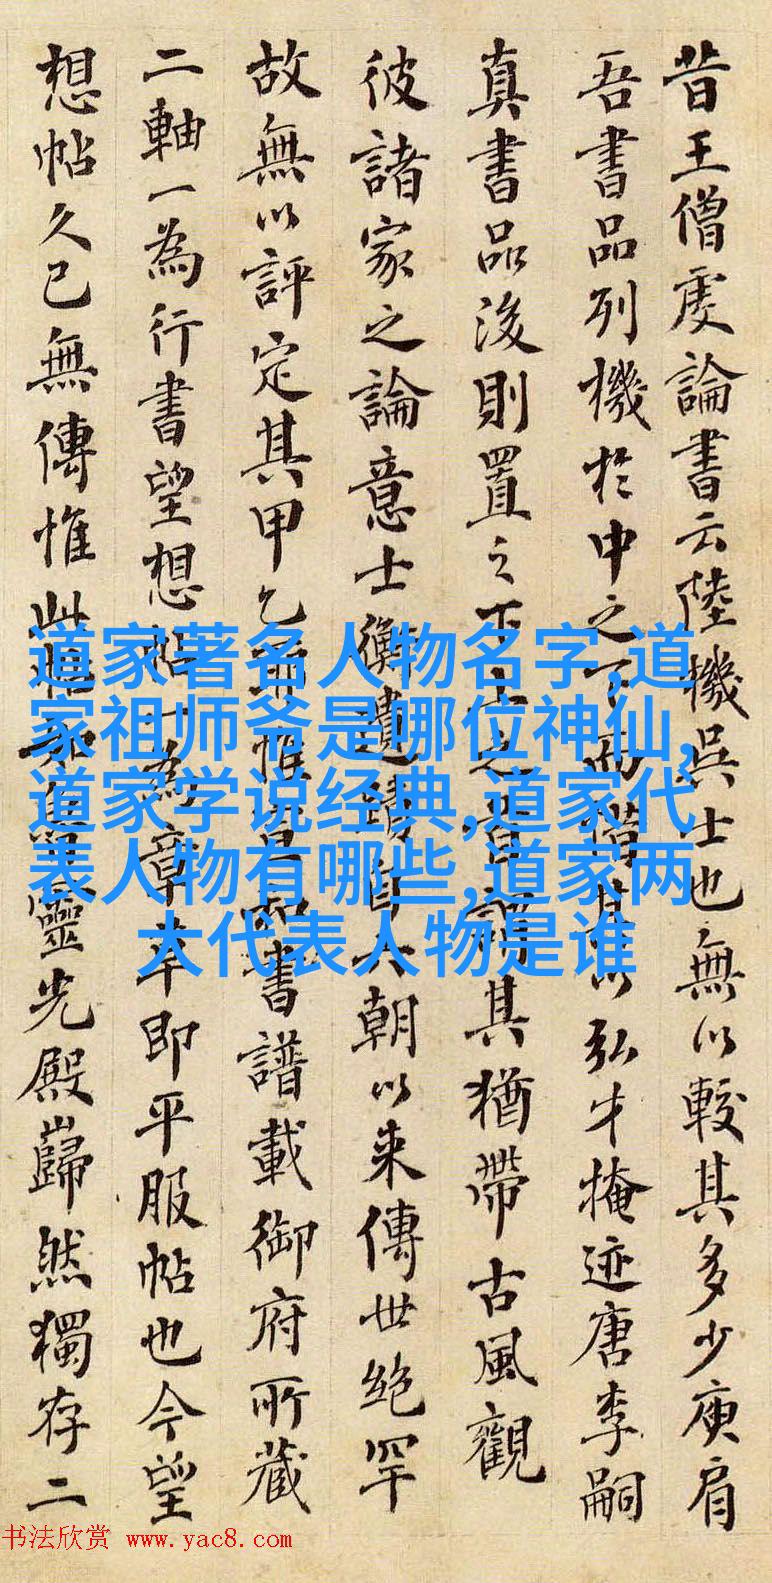 昔王僧虔論書云陸機吳士也無以較其多少庾肩
吾書品列機於中之下而惜其以弘才掩迹唐李嗣
真書品後則置之下上之首謂其猶帶古風觀
彼諸家之論意士衡遺蹟自六朝以来傳世絶罕
故無以評定其甲乙耳惟宣和書譜載御府所藏
二軸一為行書望想帖一為章草即平服帖也今望
想帖久已無傳惟此帖如魯靈光殿巋然獨存二
道家著名人物名字,道
家祖师爷是哪位神仙,
道家学说经典,道家代
表人物有哪些,道家两
大代表人物是谁
书法欣赏 www.yac8.com